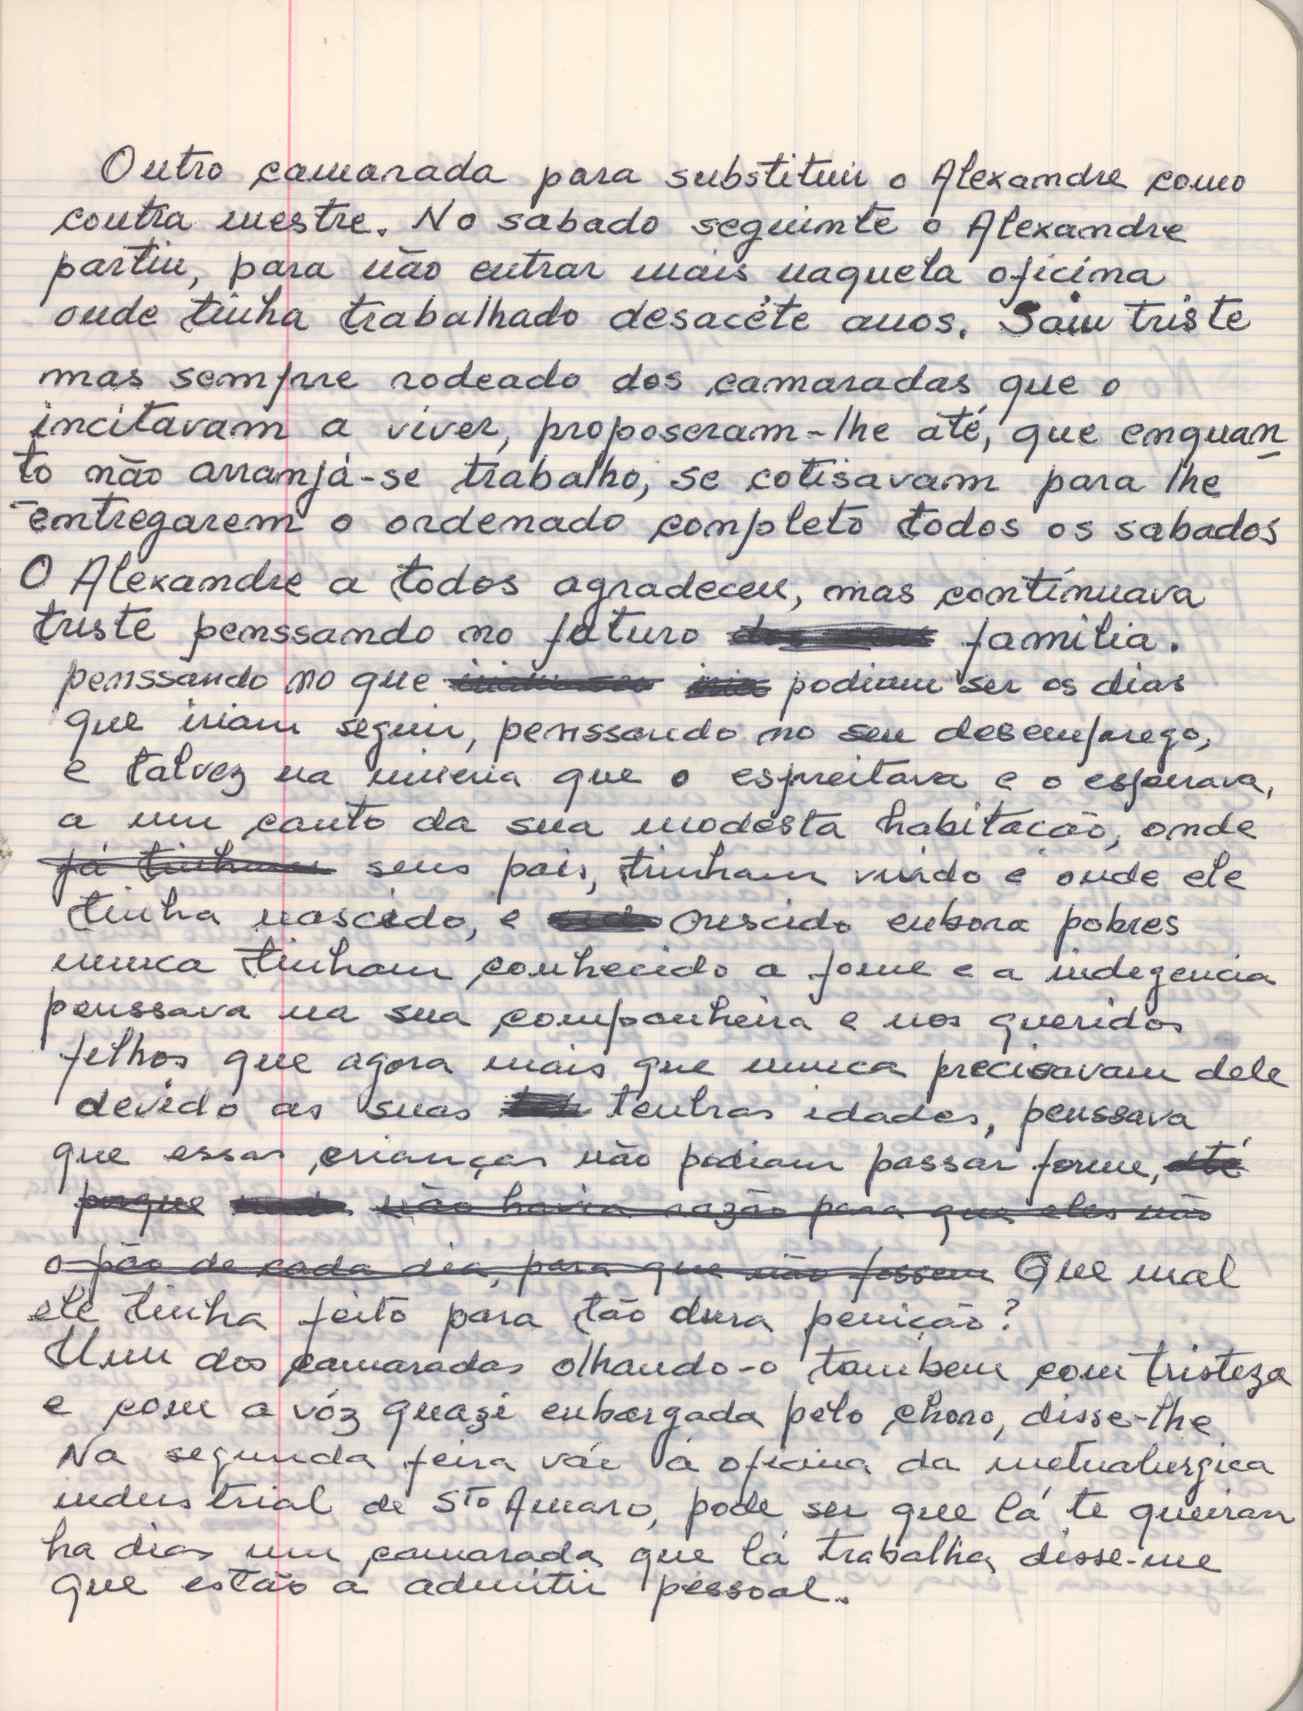 Outro camarada para substituir o Alexandre como
contra mestre. No sabado seguinte o Alexandre
partiu, para não entrar mais naquela oficina
onde tinha trabalhado desacéte anos. Saiu triste
mas sempre rodeado dos camaradas que o
incitavam a viver, proposeram-lhe até, que enquan
to não arranjá-se trabalho, se cotisavam para lhe
entregarem o ordenado completo todos os sabados
O Alexandre a todos agradeceu, mas continuava
triste penssando no futuro familia.
penssando no que podiam ser os dias
que iriam seguir, penssando no seu desemprego,
e talvez na miseria que o espreitava e o esperava,
a um canto da sua modesta habitacão, onde
já tinham seus pais, tinham vivido e onde ele
tinha nascido, e crescido enbora pobres
nunca tinham conhecido a fome e a indegencia
penssava na sua companheira e nos queridos
filhos que agora mais que nunca precisavam dele
devido as suas tenhras idades, penssava
que essas crianças não podiam passar fome, até
porque não havia razão para que eles não
o pão de cada dia, para que não fossem Que mal
ele tinha feito para tão dura penição?
Um dos camaradas olhando-o tambem com tristeza
e com a vóz quazi enbargada pelo choro, disse-lhe
Na segunda feira vái á oficina da metualurgica
industrial de Sto Amaro, pode ser que lá te queiram
ha dias um camarada que lá trabalha, disse-me
que estão a admitir pessoal.